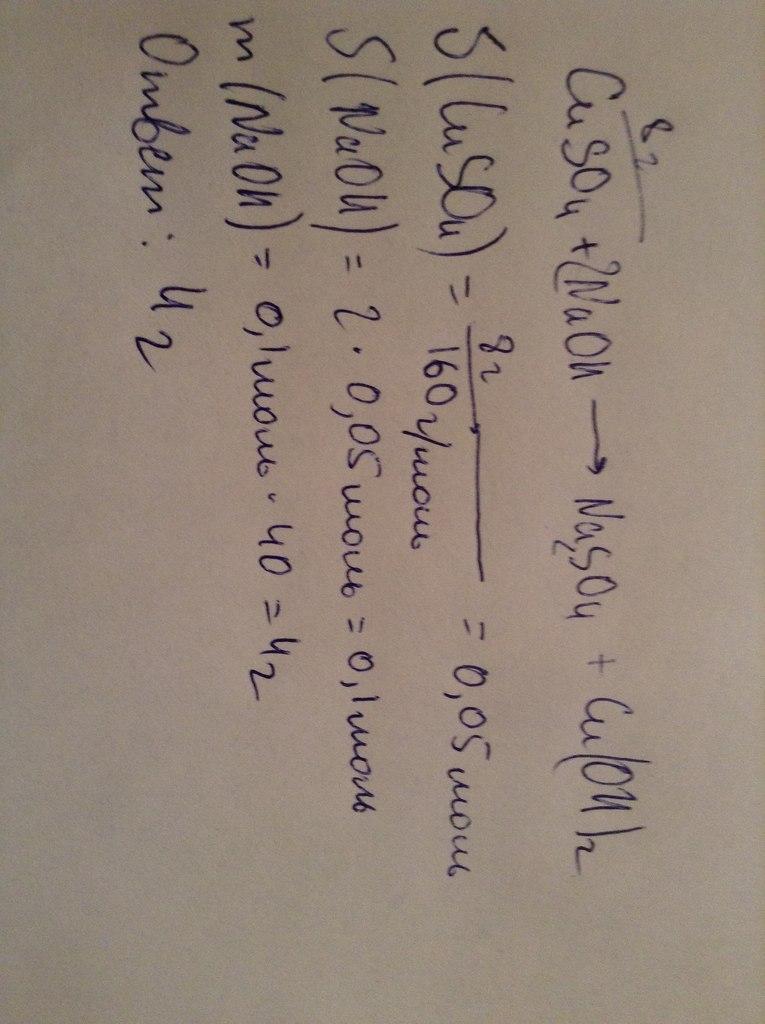 8 г
CuSO4 + 2NaOH → Na2SO4 + Cu(OH)2
S(CuSO4) = 8г / 160 г/моль = 0,05 моль
S(NaOH) = 2 · 0,05 моль = 0,1 моль
m(NaOH) = 0,1 моль · 40 = 4 г
Ответ: 4 г